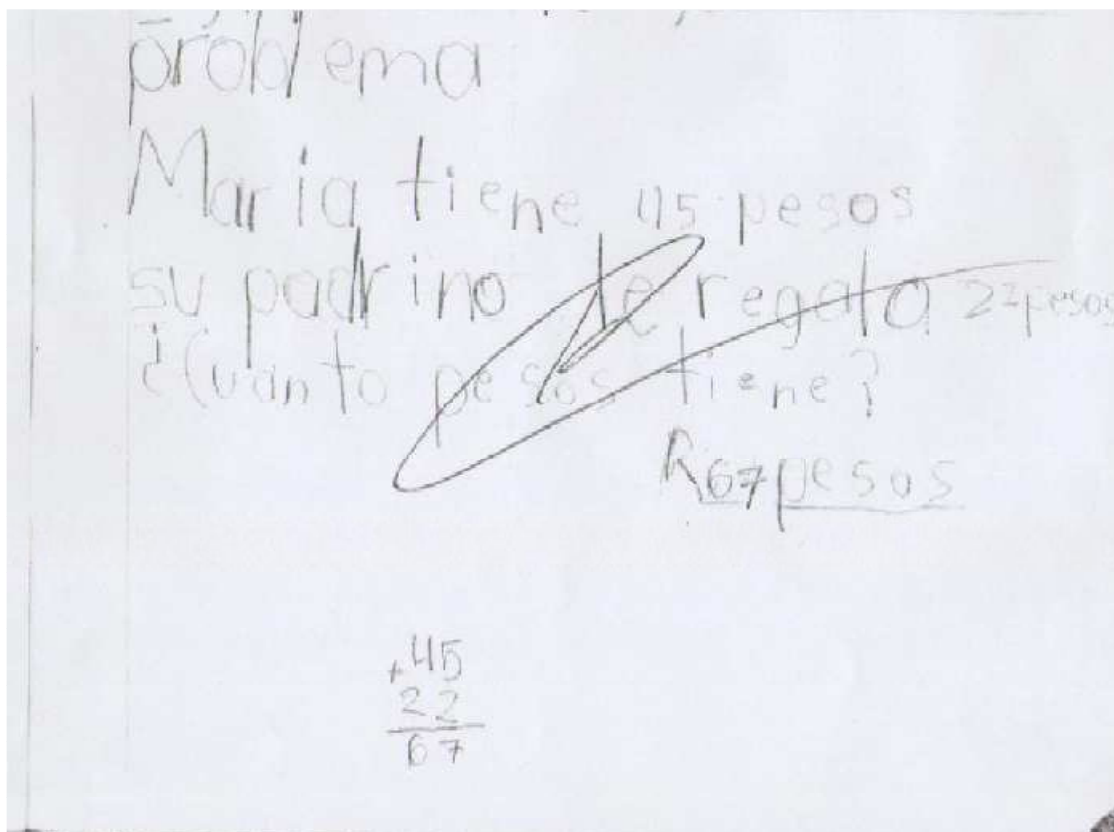 problema
Maria tiene 45 pesos
su padrino le regalo 22 pesos
¿Cuanto pesos tiene?
R 67 pesos
+45
22
67